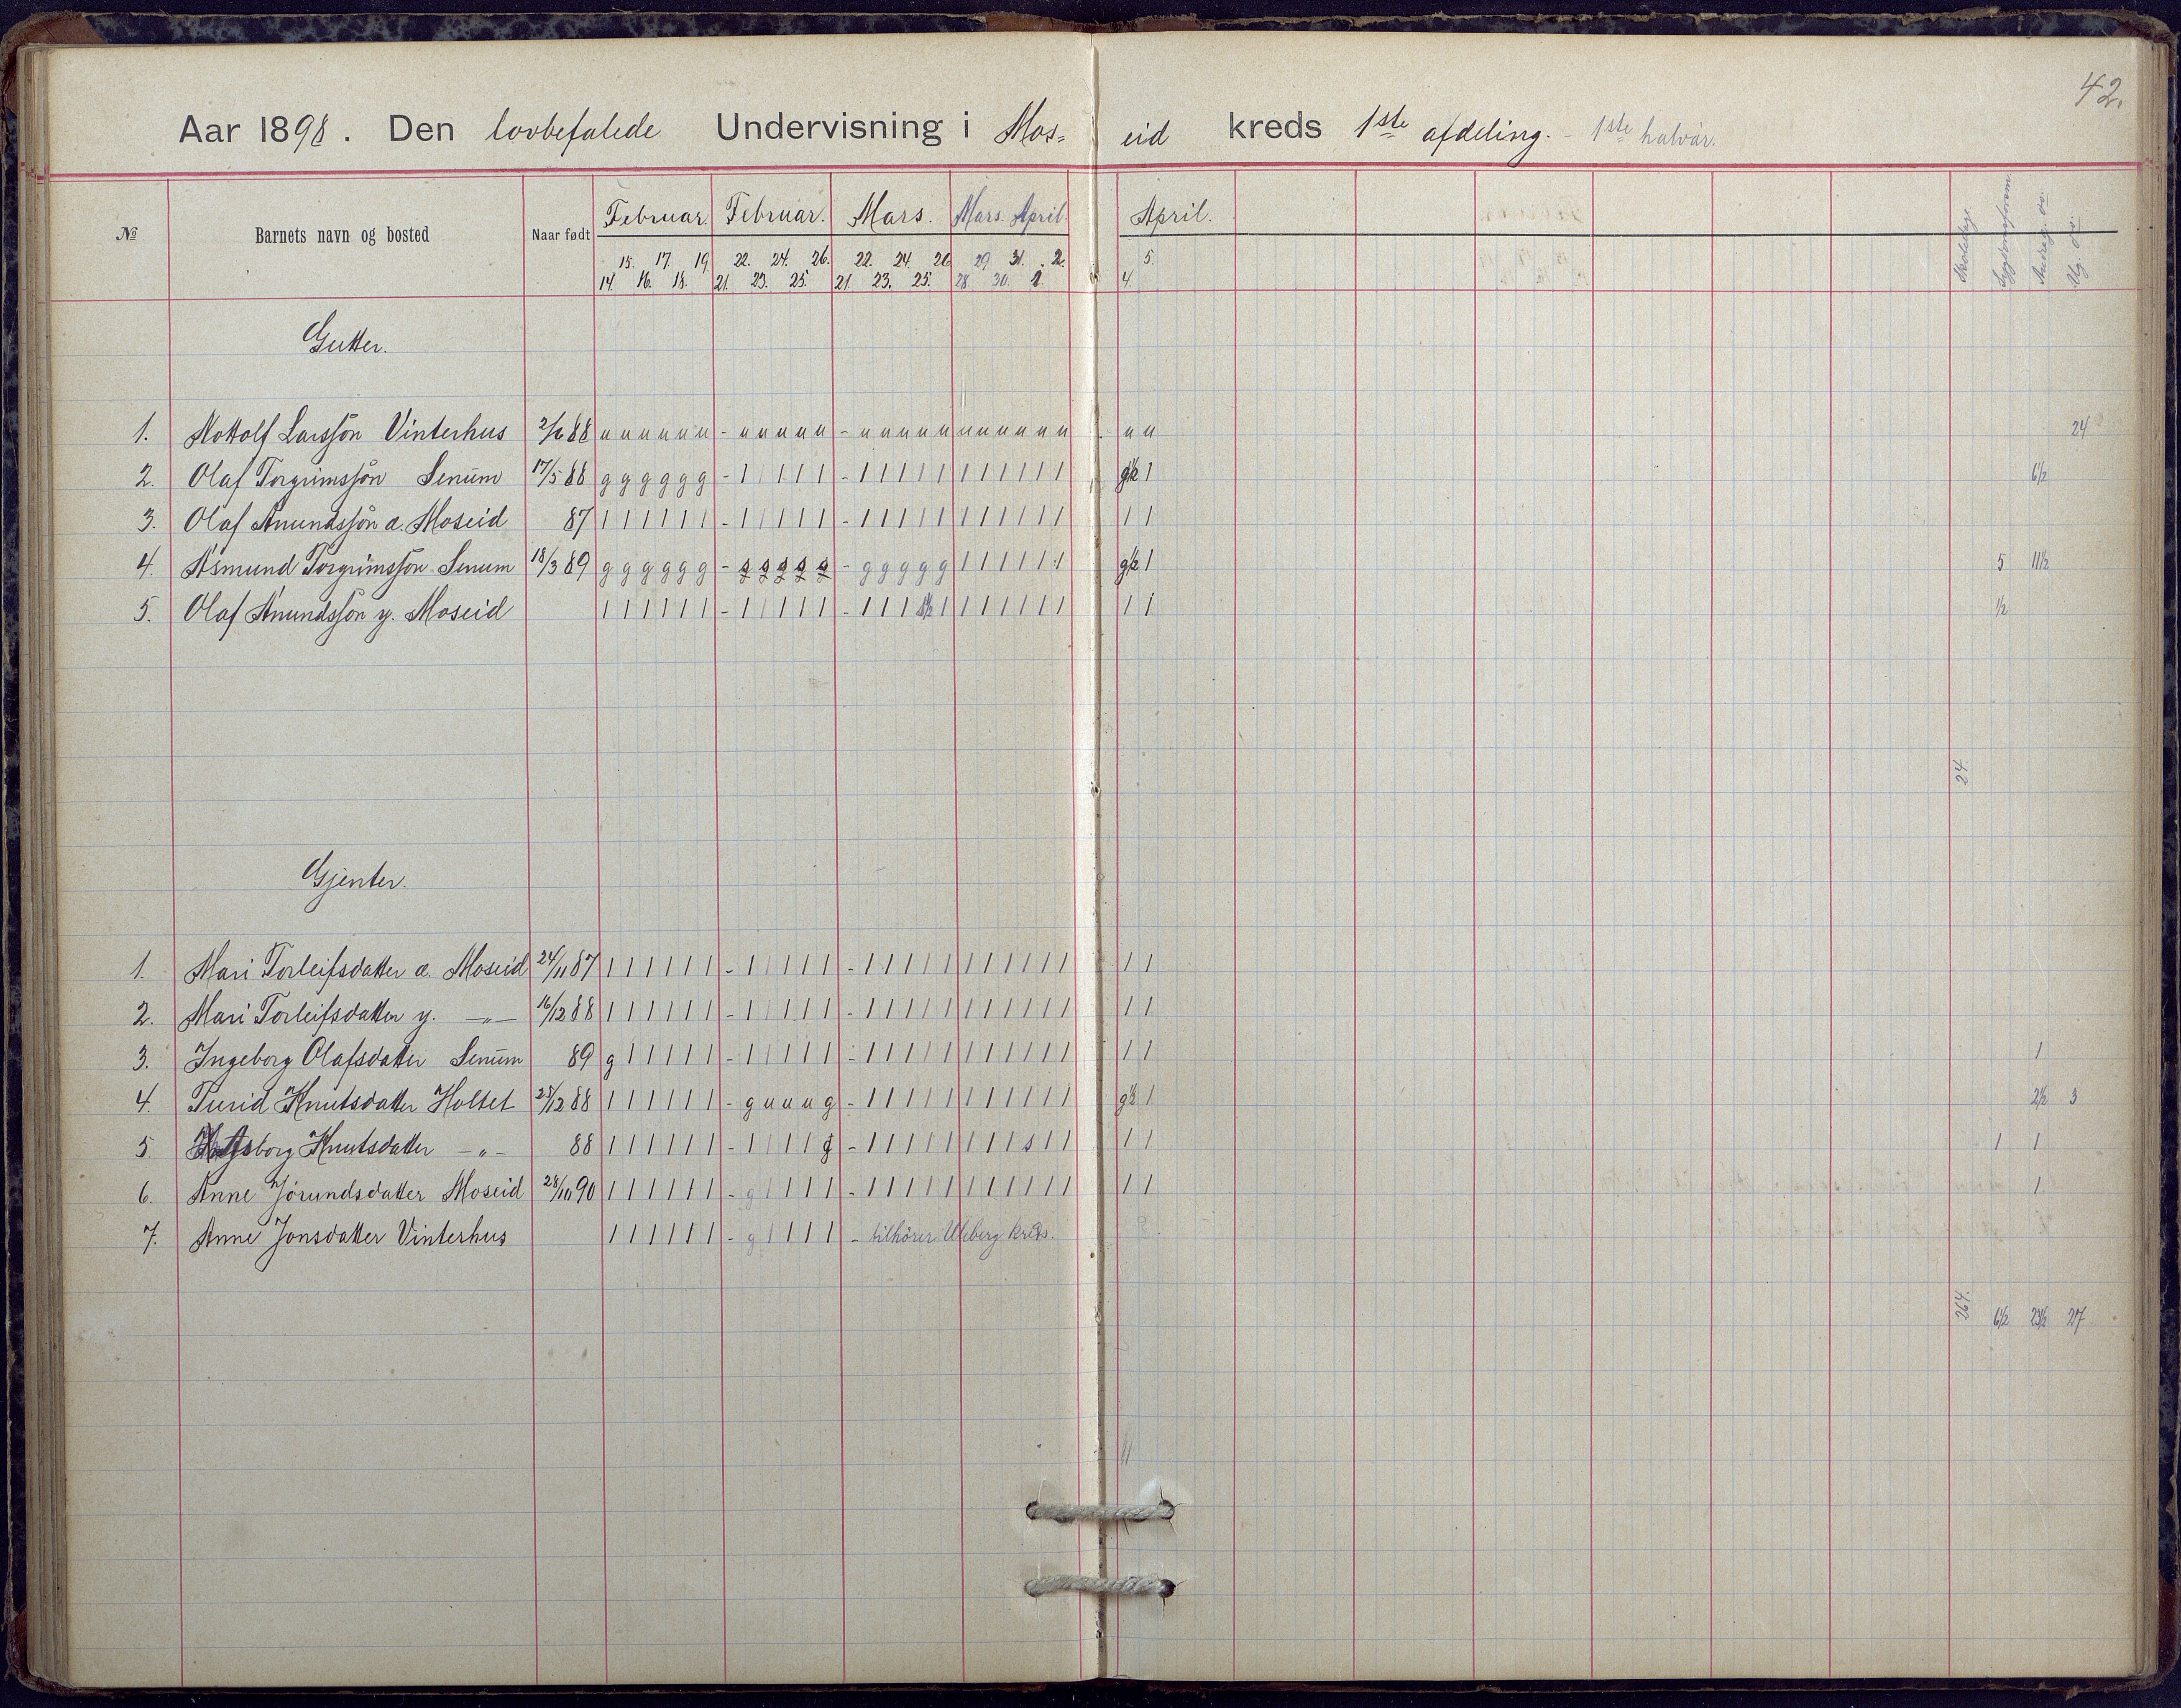 42.
Aar 1898. Den lovbefalede Undervisning i Mos= eid kreds 1ste afdeling. - 1ste halvår.
№ Barnets navn og bosted Naar født Februar. Februar. Mars. Mars. April. April. Skoledage Sygdomsforsøm.
15. 17. 19. 22. 24. 26. 22. 24. 26 29. 31. 2. 5.
14. 16. 18. 21. 23. 25. 21. 23. 25. 28. 30. 1. 4.
Gutter.
1. Nottolf Larssøn Vinterhus 2/6 88 u u u u u u - u u u u u - u u u u u u u u u u u u u 24
2. Olaf Torgrimssøn Senum 17/5 88 g g g g g g - 1 1 1 1 1 - 1 1 1 1 1 1 1 1 1 1 1 g½ 1 6½
3. Olaf Anundssøn æ. Moseid 87 1 1 1 1 1 1 - 1 1 1 1 1 - 1 1 1 1 1 1 1 1 1 1 1 1 1
4. Asmund Torgrimssøn Senum 18/3 89 g g g g g g - s s s s s - g g g g g 1 1 1 1 1 1 g½ 1 5 11½
5. Olaf Anundssøn y. Moseid 1 1 1 1 1 1 - 1 1 1 1 1 - 1 1 1 s½ 1 1 1 1 1 1 1 1 1 ½
24
Gjenter.
1. Mari Torleifsdatter æ. Moseid 24/11 87 1 1 1 1 1 1 - 1 1 1 1 1 - 1 1 1 1 1 1 1 1 1 1 1 1 1
2. Mari Torleifsdatter y. -"- 16/12 88 1 1 1 1 1 1 - 1 1 1 1 1 - 1 1 1 1 1 1 1 1 1 1 1 1 1
3. Ingeborg Olafsdatter Senum 89 g 1 1 1 1 1 - 1 1 1 1 1 - 1 1 1 1 1 1 1 1 1 1 1 1 1 1
4. Turid Knutsdatter Holtet 28/12 88 1 1 1 1 1 1 - g u u u g - 1 1 1 1 1 1 1 1 1 1 1 g½ 1 2½ 3
5. Knutsdatter -"- 88 1 1 1 1 1 1 - 1 1 1 1 g - 1 1 1 1 1 1 1 1 s 1 1 1 1 1 1
6. Anne Jørundsdatter Moseid 28/10 90 1 1 1 1 1 1 - g 1 1 1 1 - 1 1 1 1 1 1 1 1 1 1 1 1 1 1
7. Anne Jonsdatter Vinterhus 1 1 1 1 1 1 - g 1 1 1 1 - tilhører Uleberg kreds.
264. 6½ 23½ 27